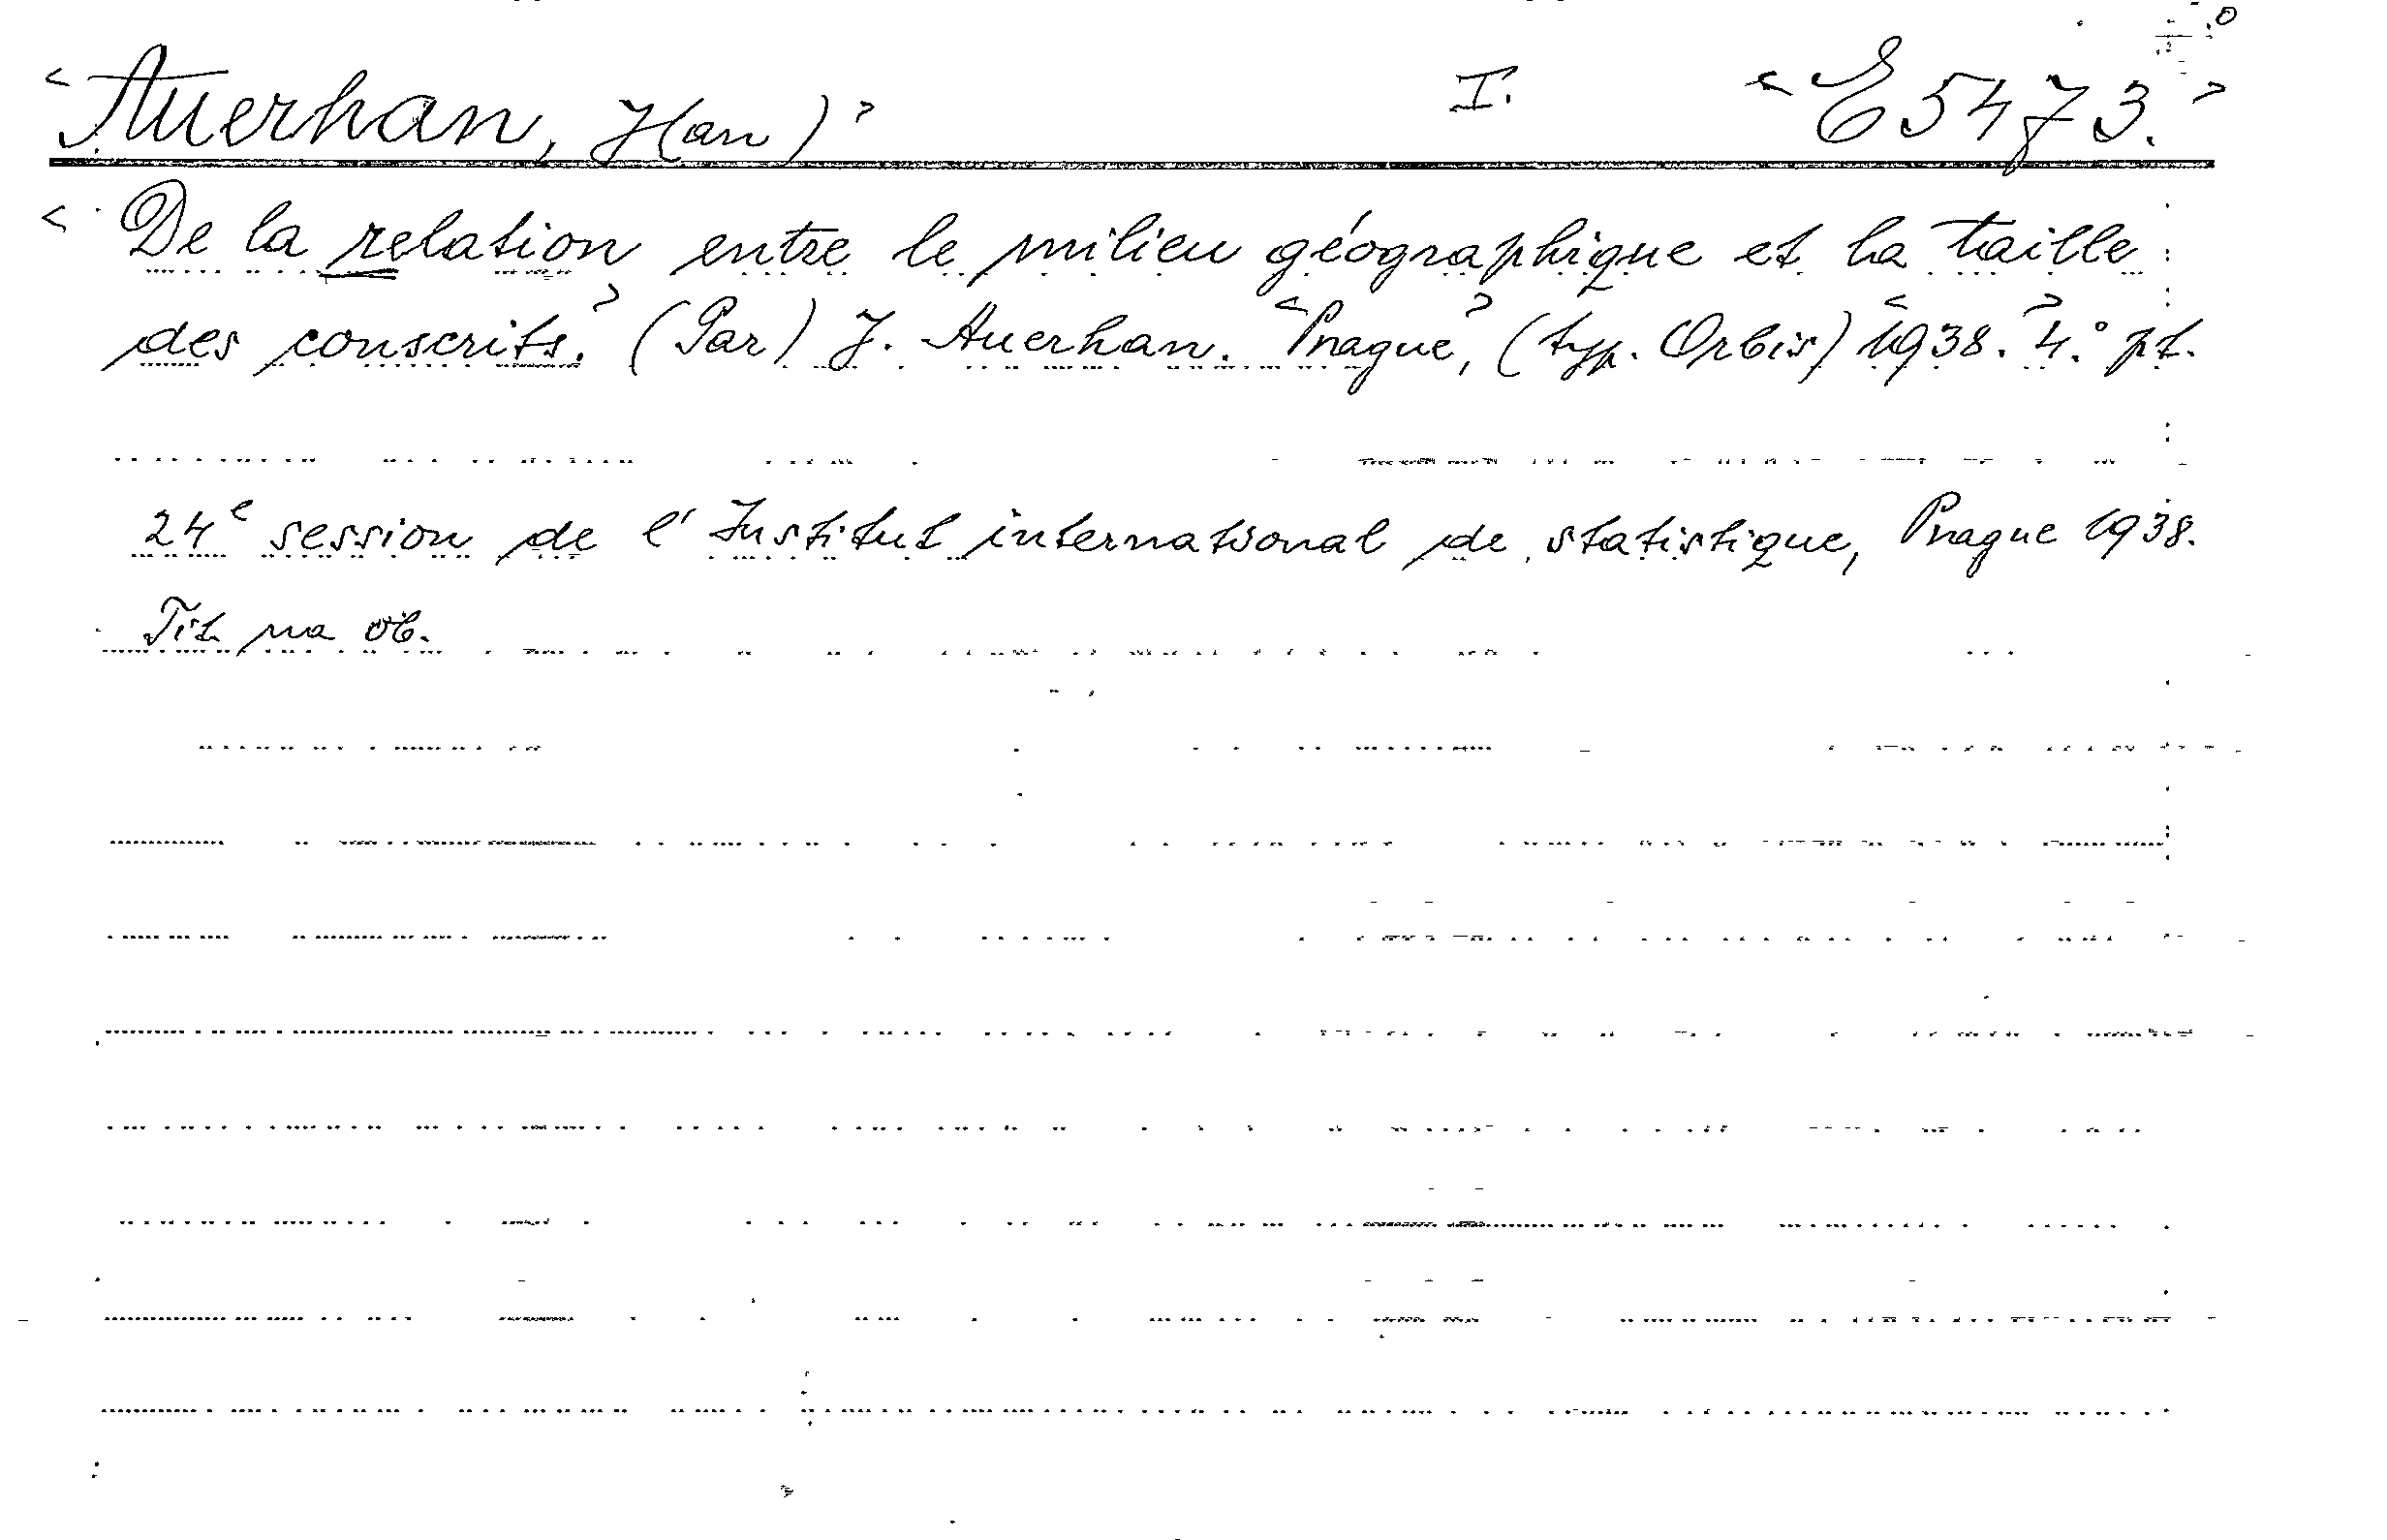 <Auerhan, J(an)> I. <E 5473.>
<De la relation entre le milieu géographique et la taille
des conscrits.> (Par) J. Auerhan. <Prague>, (typ. Orbis) <1938.> 4.° pt.
24e session de l'Institut international de statistique, Prague 1938.
Tit. na ob.